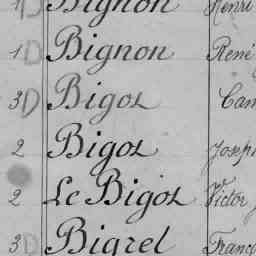 1D Bignon Henri
1D Bignon René
3D Bigot Cam
2 Bigot Joseph
2 Le Bigot Victor
3D Bigrel Franço